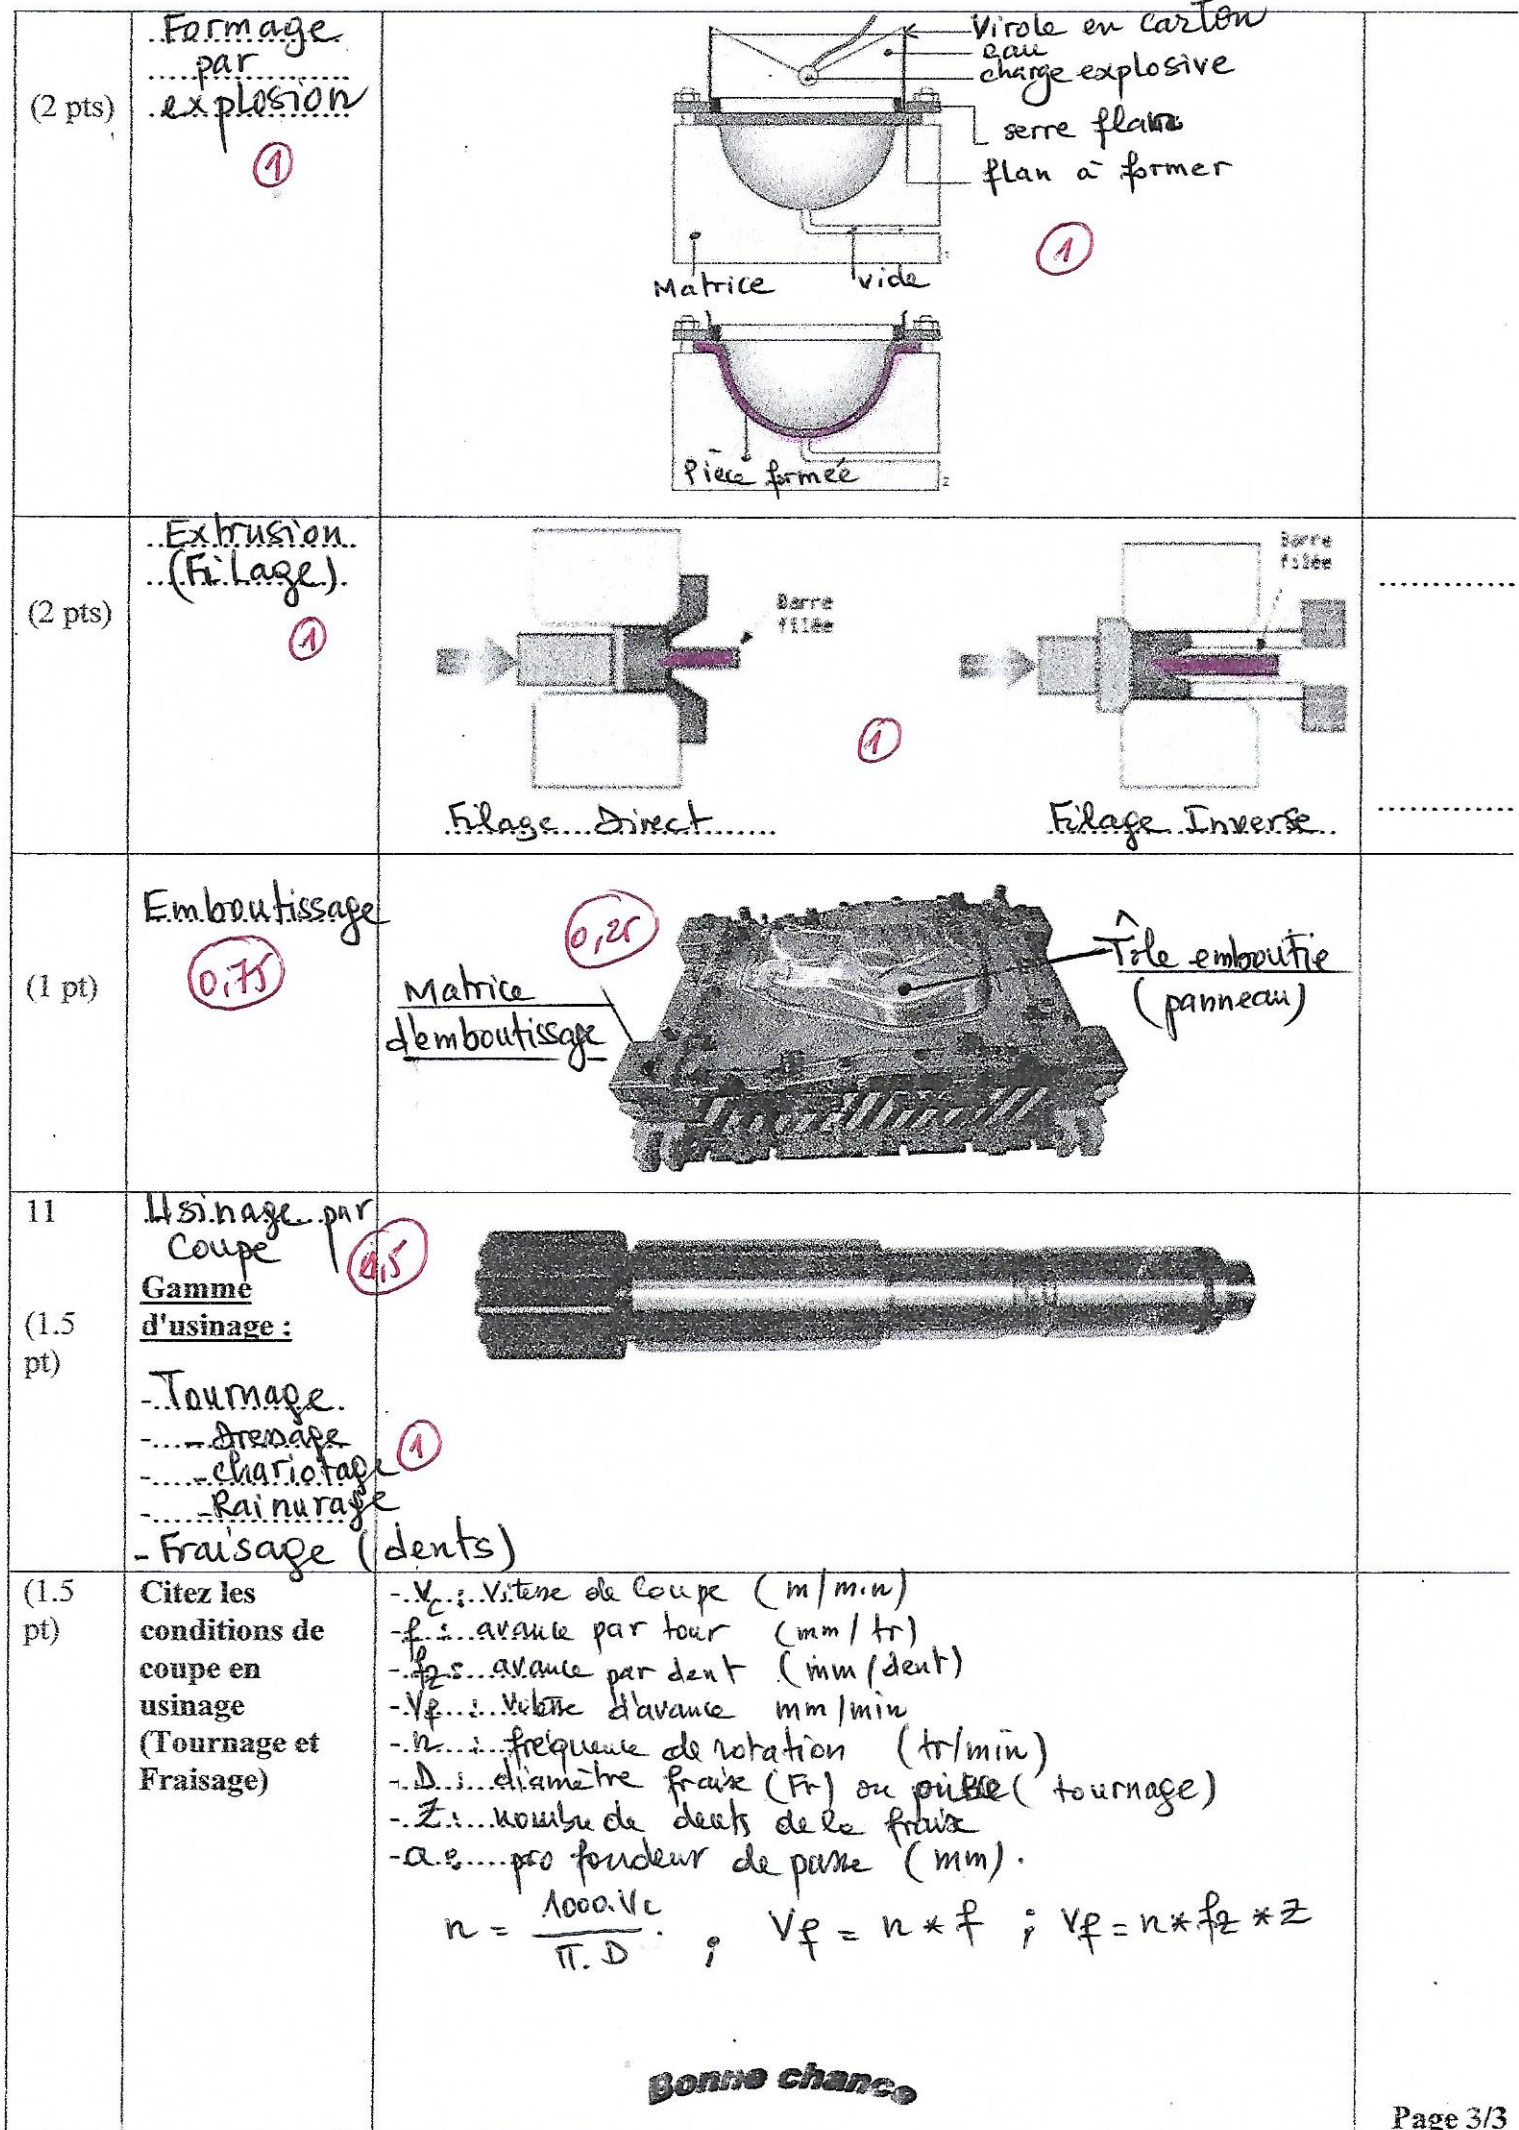 Formage
par
explosion
(2 pts)
1
Virole en carton
eau
charge explosive
serre flan
flan à former
1
1
Matrice
vide
Pièce formée
2
Extrusion
(Filage)
(2 pts)
1
Barre
filée
Barre
filée
1
Filage Direct
Filage Inverse
Emboutissage
0,75
(1 pt)
0,25
Matrice
d'emboutissage
Tôle emboutie
(panneau)
11
Usinage par
Coupe
0,5
Gamme
d'usinage :
(1.5
pt)
- Tournage
- - Dressage
- - chariotage
- - Rainurage
1
- Fraisage (dents)
(1.5
pt)
Citez les
conditions de
coupe en
usinage
(Tournage et
Fraisage)
- Vc : Vitesse de Coupe (m/min)
- f : avance par tour (mm/tr)
- fz : avance par dent (mm/dent)
- Vf : Vitesse d'avance mm/min
- n : fréquence de rotation (tr/min)
- D : diamètre fraise (Fr) ou pièce (tournage)
- Z : nombre de dents de la fraise
- a : profondeur de passe (mm).
n = 1000.Vc / π.D . ; Vf = n * f ; Vf = n * fz * Z
Bonne chance
Page 3/3